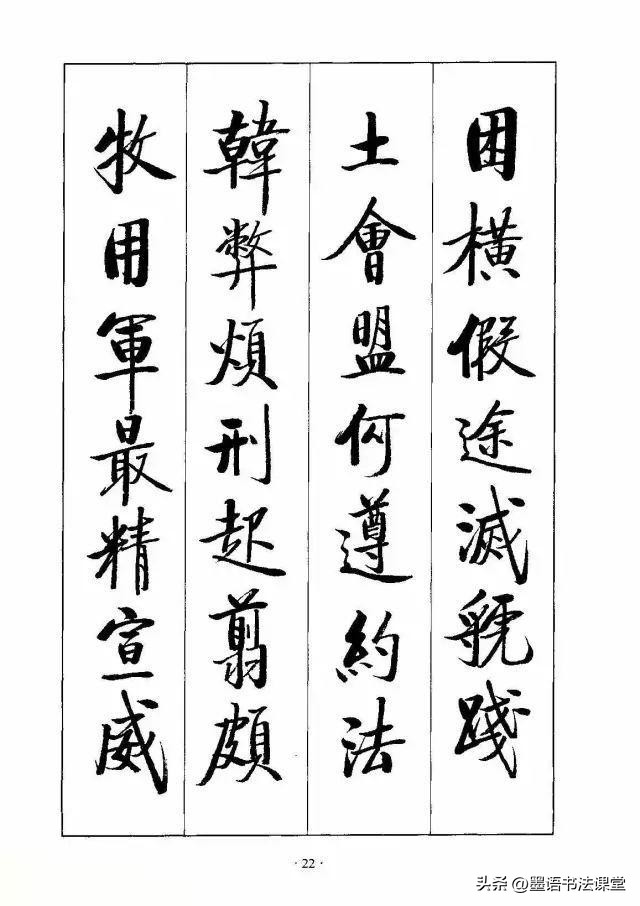 困橫假途滅虢踐
土會盟何遵約法
韓弊煩刑起翦頗
牧用軍最精宣威
·22·
头条@墨语书法课堂